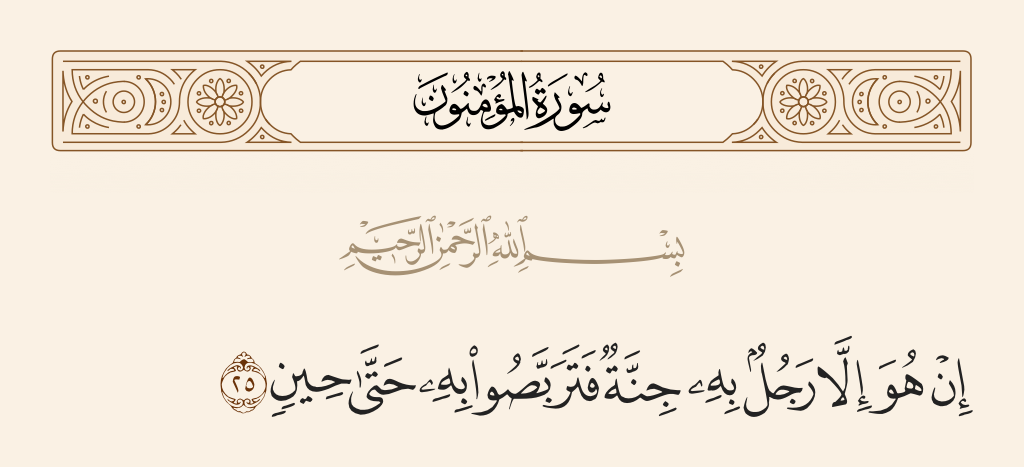 سُورَةُ المُؤْمِنُونَ
بِسْمِ ٱللَّهِ ٱلرَّحْمَٰنِ ٱلرَّحِيمِ
إِنْ هُوَ إِلَّا رَجُلٌۢ بِهِۦ جِنَّةٌ فَتَرَبَّصُوا۟ بِهِۦ حَتَّىٰ حِينٍ ٢٥